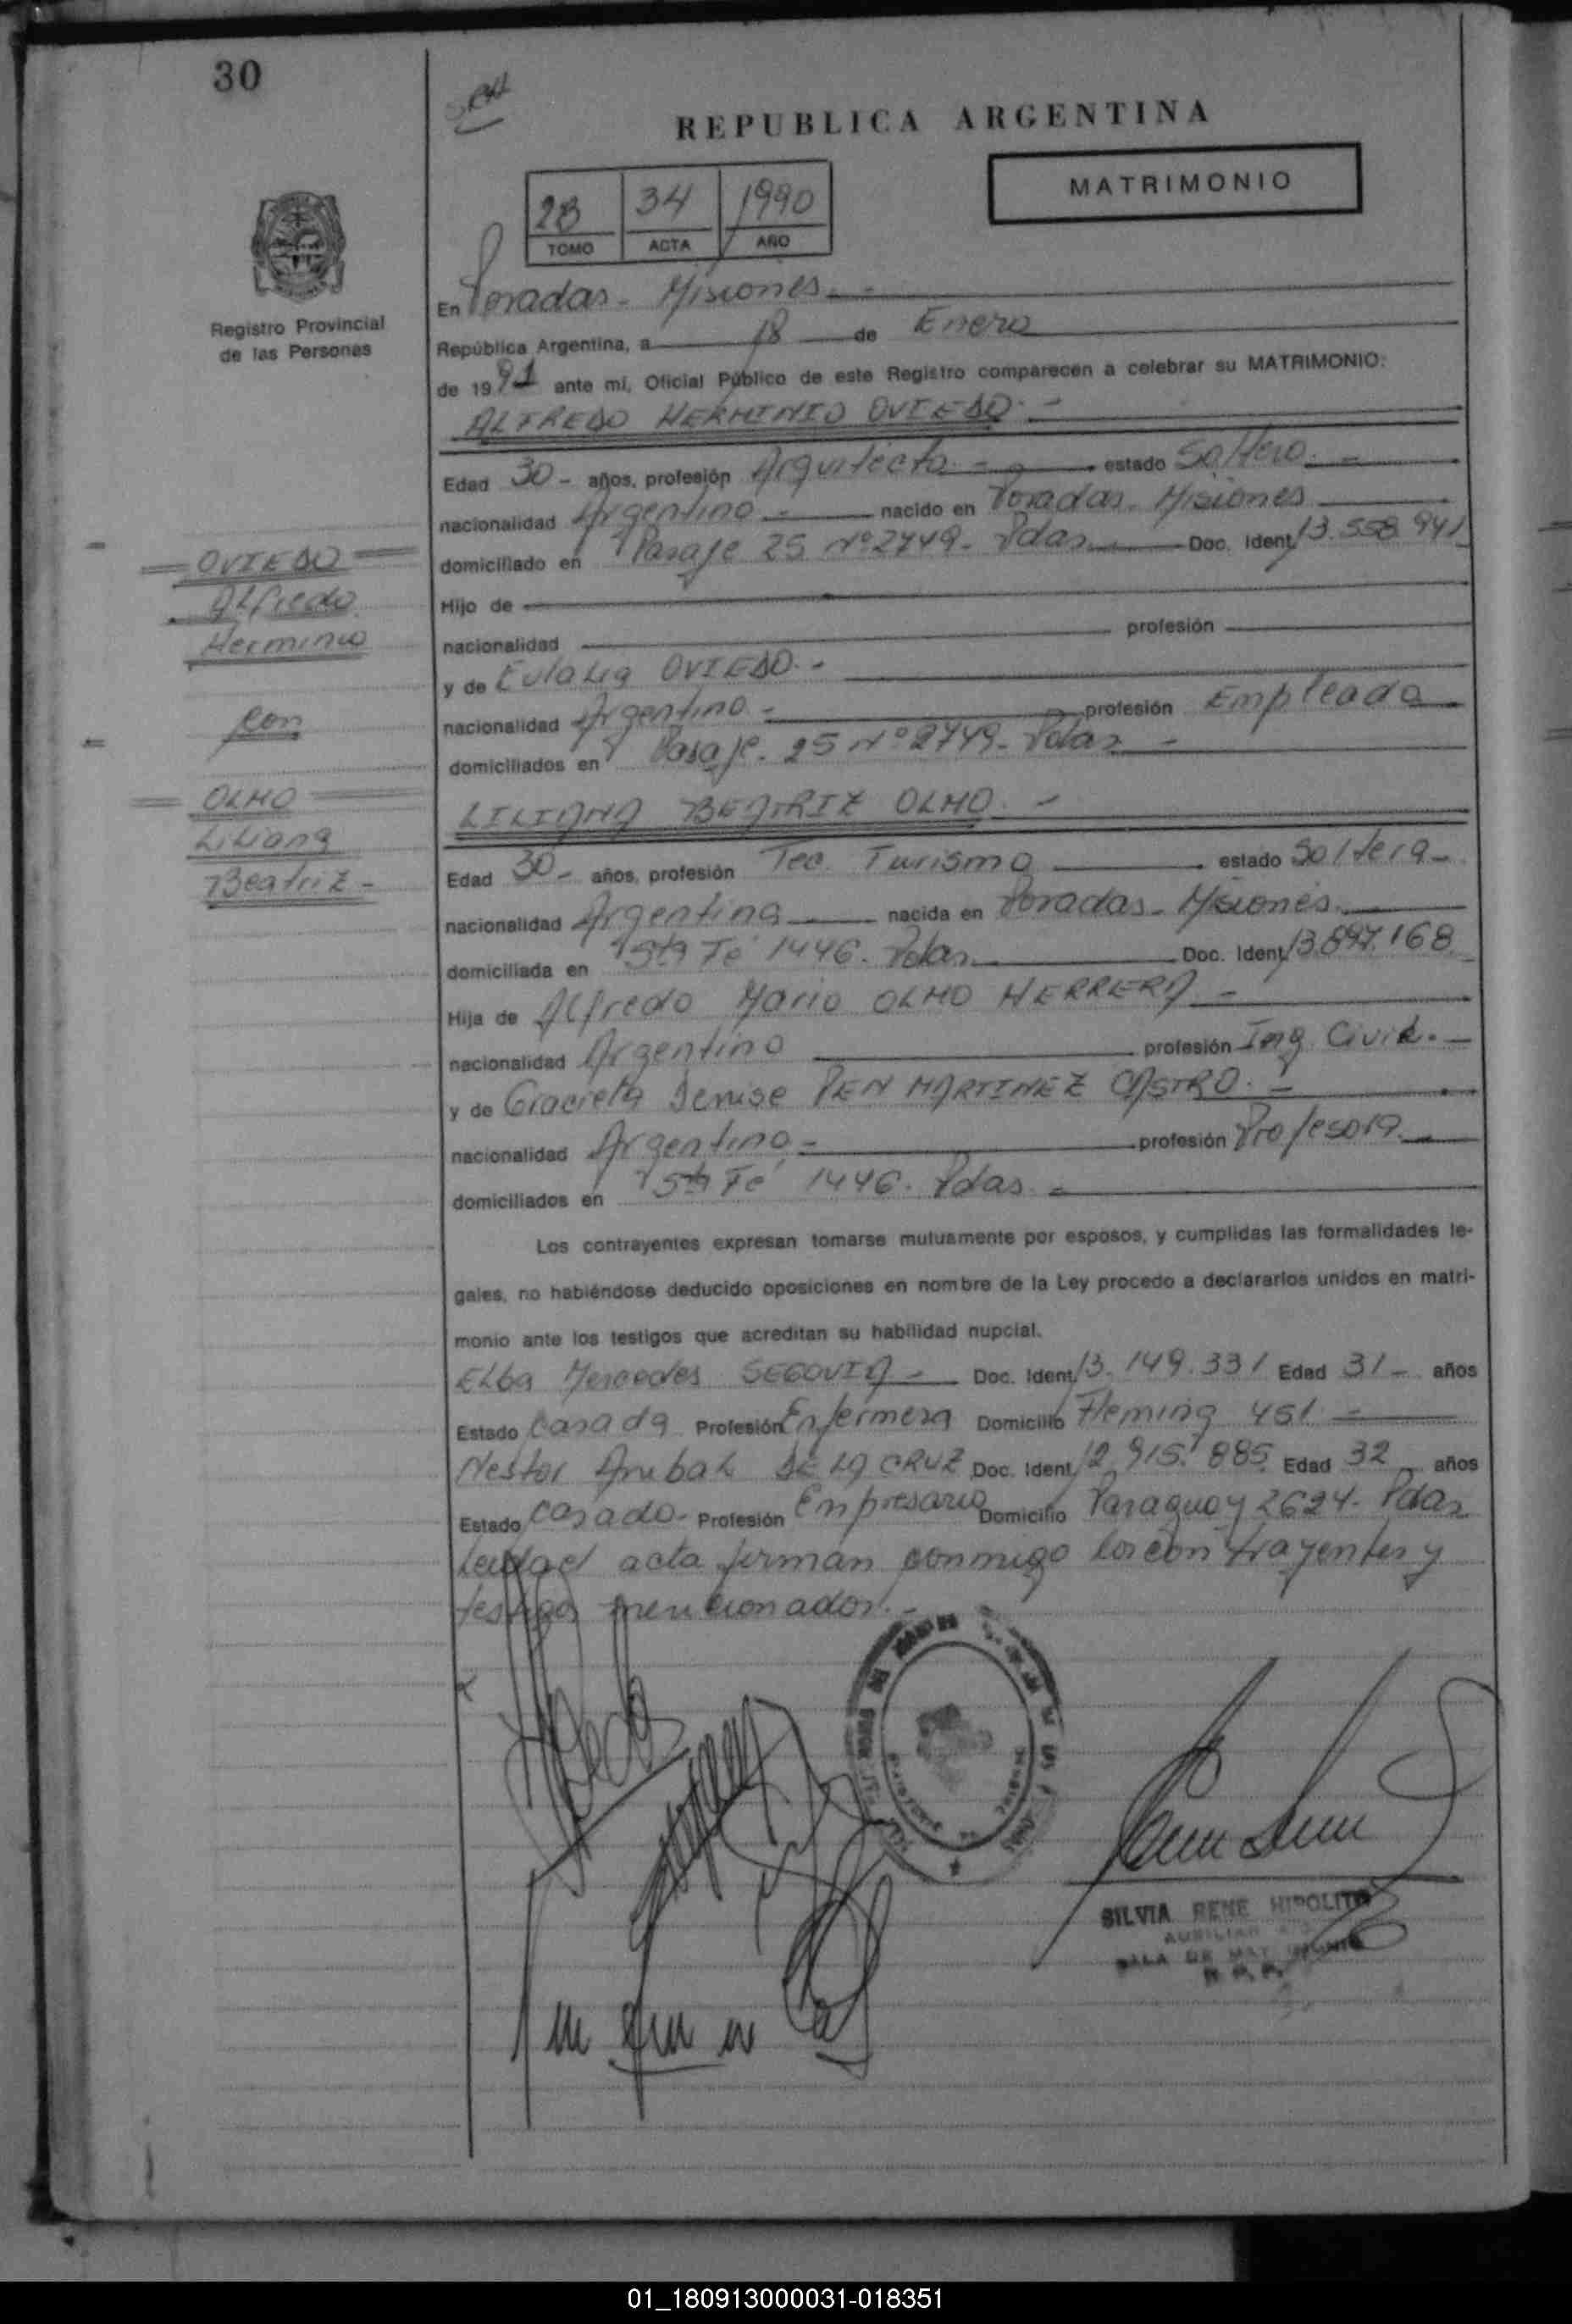 30
REPUBLICA ARGENTINA
MATRIMONIO
28 34 1990
TOMO ACTA AÑO
Registro Provincial
de las Personas
En Posadas - Misiones -
República Argentina, a 18 de Enero
de 1991 ante mí, Oficial Público de este Registro comparecen a celebrar su MATRIMONIO:
ALFREDO HERMINIO OVIEDO. -
Edad 30 - años, profesión Arquitecto - estado Soltero. -
nacionalidad Argentino - nacido en Posadas - Misiones
domiciliado en Pasaje 25 Nº 2749 - Pdas Doc. Ident. 13.558.941
Hijo de
nacionalidad profesión
y de Eulalia OVIEDO. -
nacionalidad Argentina - profesión Empleada
domiciliados en Pasaje. 25 Nº 2749 - Pdas -
OVIEDO
Alfredo
Herminio
con
OLMO
Liliana
Beatriz -
LILIANA BEATRIZ OLMO. -
Edad 30 - años, profesión Tec. Turismo estado Soltera -
nacionalidad Argentina nacida en Posadas - Misiones.
domiciliada en Sta Fé 1446. Pdas. Doc. Ident. 13.897.168
Hija de Alfredo Mario OLMO HERRERA -
nacionalidad Argentino profesión Ing. Civil. -
y de Graciela Denise PEN MARTINEZ CASTRO. -
nacionalidad Argentina - profesión Profesora.
domiciliados en Sta Fé 1446. Pdas. -
Los contrayentes expresan tomarse mutuamente por esposos, y cumplidas las formalidades le-
gales, no habiéndose deducido oposiciones en nombre de la Ley procedo a declararlos unidos en matri-
monio ante los testigos que acreditan su habilidad nupcial.
Elba Mercedes SEGOVIA - Doc. Ident. 13.149.331 Edad 31 - años
Estado Casada Profesión Enfermera Domicilio Fleming 451 -
Nestor Anibal DE LA CRUZ Doc. Ident. 12.915.885 Edad 32 años
Estado Casado - Profesión Empresario Domicilio Paraguay 2624 - Pdas
Leida el acta firman conmigo los contrayentes y
testigos mencionados. -
SILVIA RENE HIPOLITO
AUXILIAR
SALA DE MATRIMONIO
R. P. P.
01_180913000031-018351